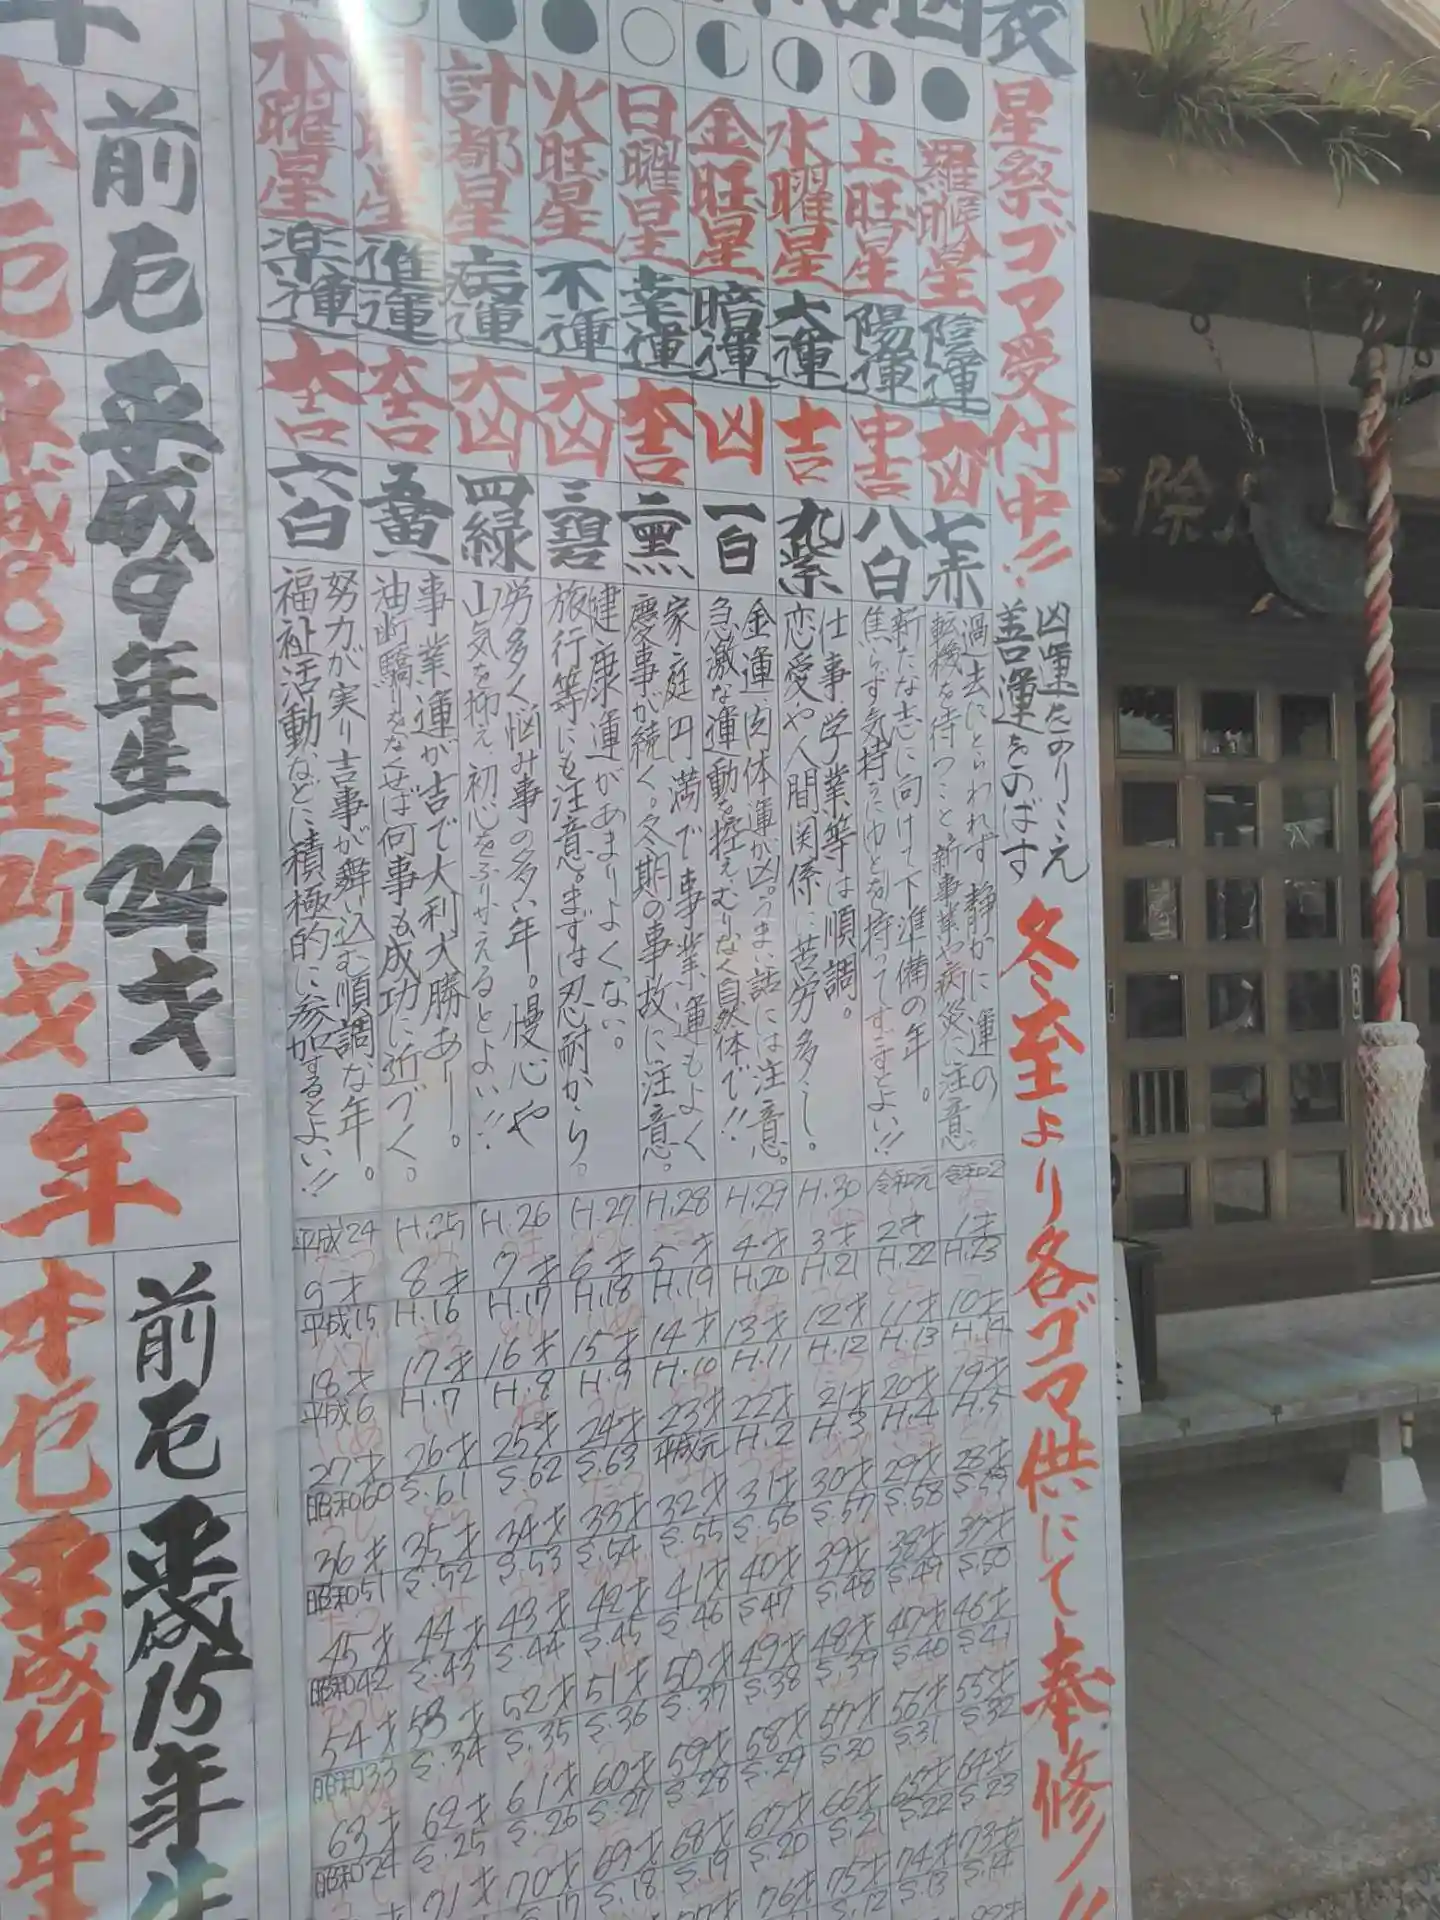 表
星祭ゴマ受付中!!
凶運をのりこえ
善運をのばす
冬至より各ゴマ供にて奉修!!
羅睺星
陰運
大凶
七赤
過去にとらわれず静かに運の
転機を待つこと。新事業や病災に注意。
土旺星
陽運
半吉
八白
新たな志に向けて下準備の年。
焦らず気持にゆとりを持ってすすとよい!!
水曜星
大運
吉
九紫
仕事、学業等は順調。
恋愛や人間関係に苦労多し。
金旺星
暗運
凶
一白
金運、肉体運が凶。うまい話には注意。
急激な運動を控え、むりなく自然体で!!
日曜星
幸運
大吉
二黒
家庭円満で事業運もよく
慶事が続く。冬期の事故に注意。
火旺星
不運
大凶
三碧
健康運があまりよくない。
旅行等にも注意。まずは忍耐から。
計都星
病運
大凶
四緑
労多く悩み事の多い年。慢心や
山気を抑え、初心をふりかえるとよい!!
月曜星
進運
大吉
五黄
事業運が吉で大利大勝あり。
油断驕りをなくせば何事も成功に近づく。
木曜星
楽運
大吉
六白
努力が実り吉事が舞い込む順調な年。
福祉活動などに積極的に参加するとよい!!
平成24 H.25 H.26 H.27 H.28 H.29 H.30 令和元 令和2
9才 8才 7才 6才 5才 4才 3才 2才 1才
平成15 H.16 H.17 H.18 H.19 H.20 H.21 H.22 H.23
18才 17才 16才 15才 14才 13才 12才 11才 10才
平成6 H.7 H.8 H.9 H.10 H.11 H.12 H.13 H.14
27才 26才 25才 24才 23才 22才 21才 20才 19才
昭和60 S.61 S.62 S.63 平成元 H.2 H.3 H.4 H.5
36才 35才 34才 33才 32才 31才 30才 29才 28才
昭和51 S.52 S.53 S.54 S.55 S.56 S.57 S.58 S.59
45才 44才 43才 42才 41才 40才 39才 38才 37才
昭和42 S.43 S.44 S.45 S.46 S.47 S.48 S.49 S.50
54才 53才 52才 51才 50才 49才 48才 47才 46才
昭和33 S.34 S.35 S.36 S.37 S.38 S.39 S.40 S.41
63才 62才 61才 60才 59才 58才 57才 56才 55才
昭和24 S.25 S.26 S.27 S.28 S.29 S.30 S.31 S.32
71才 70才 69才 68才 67才 66才 65才 64才
S.17 S.18 S.19 S.20 S.21 S.22 S.23
76才 75才 74才 73才
S.12 S.13 S.14
前厄
平成9年生24才
本厄
平成8年生25才
年
前厄
平成15年生
本厄
平成14年
除